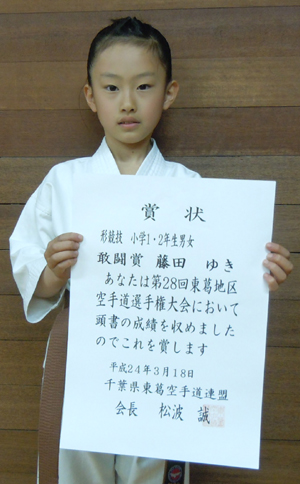 賞状
形競技 小学1・2年生男女
敢闘賞 藤田 ゆき
あなたは第28回東葛地区
空手道選手権大会において
頭書の成績を収めました
のでこれを賞します
平成24年3月18日
千葉県東葛空手道連盟
会長 松波 誠